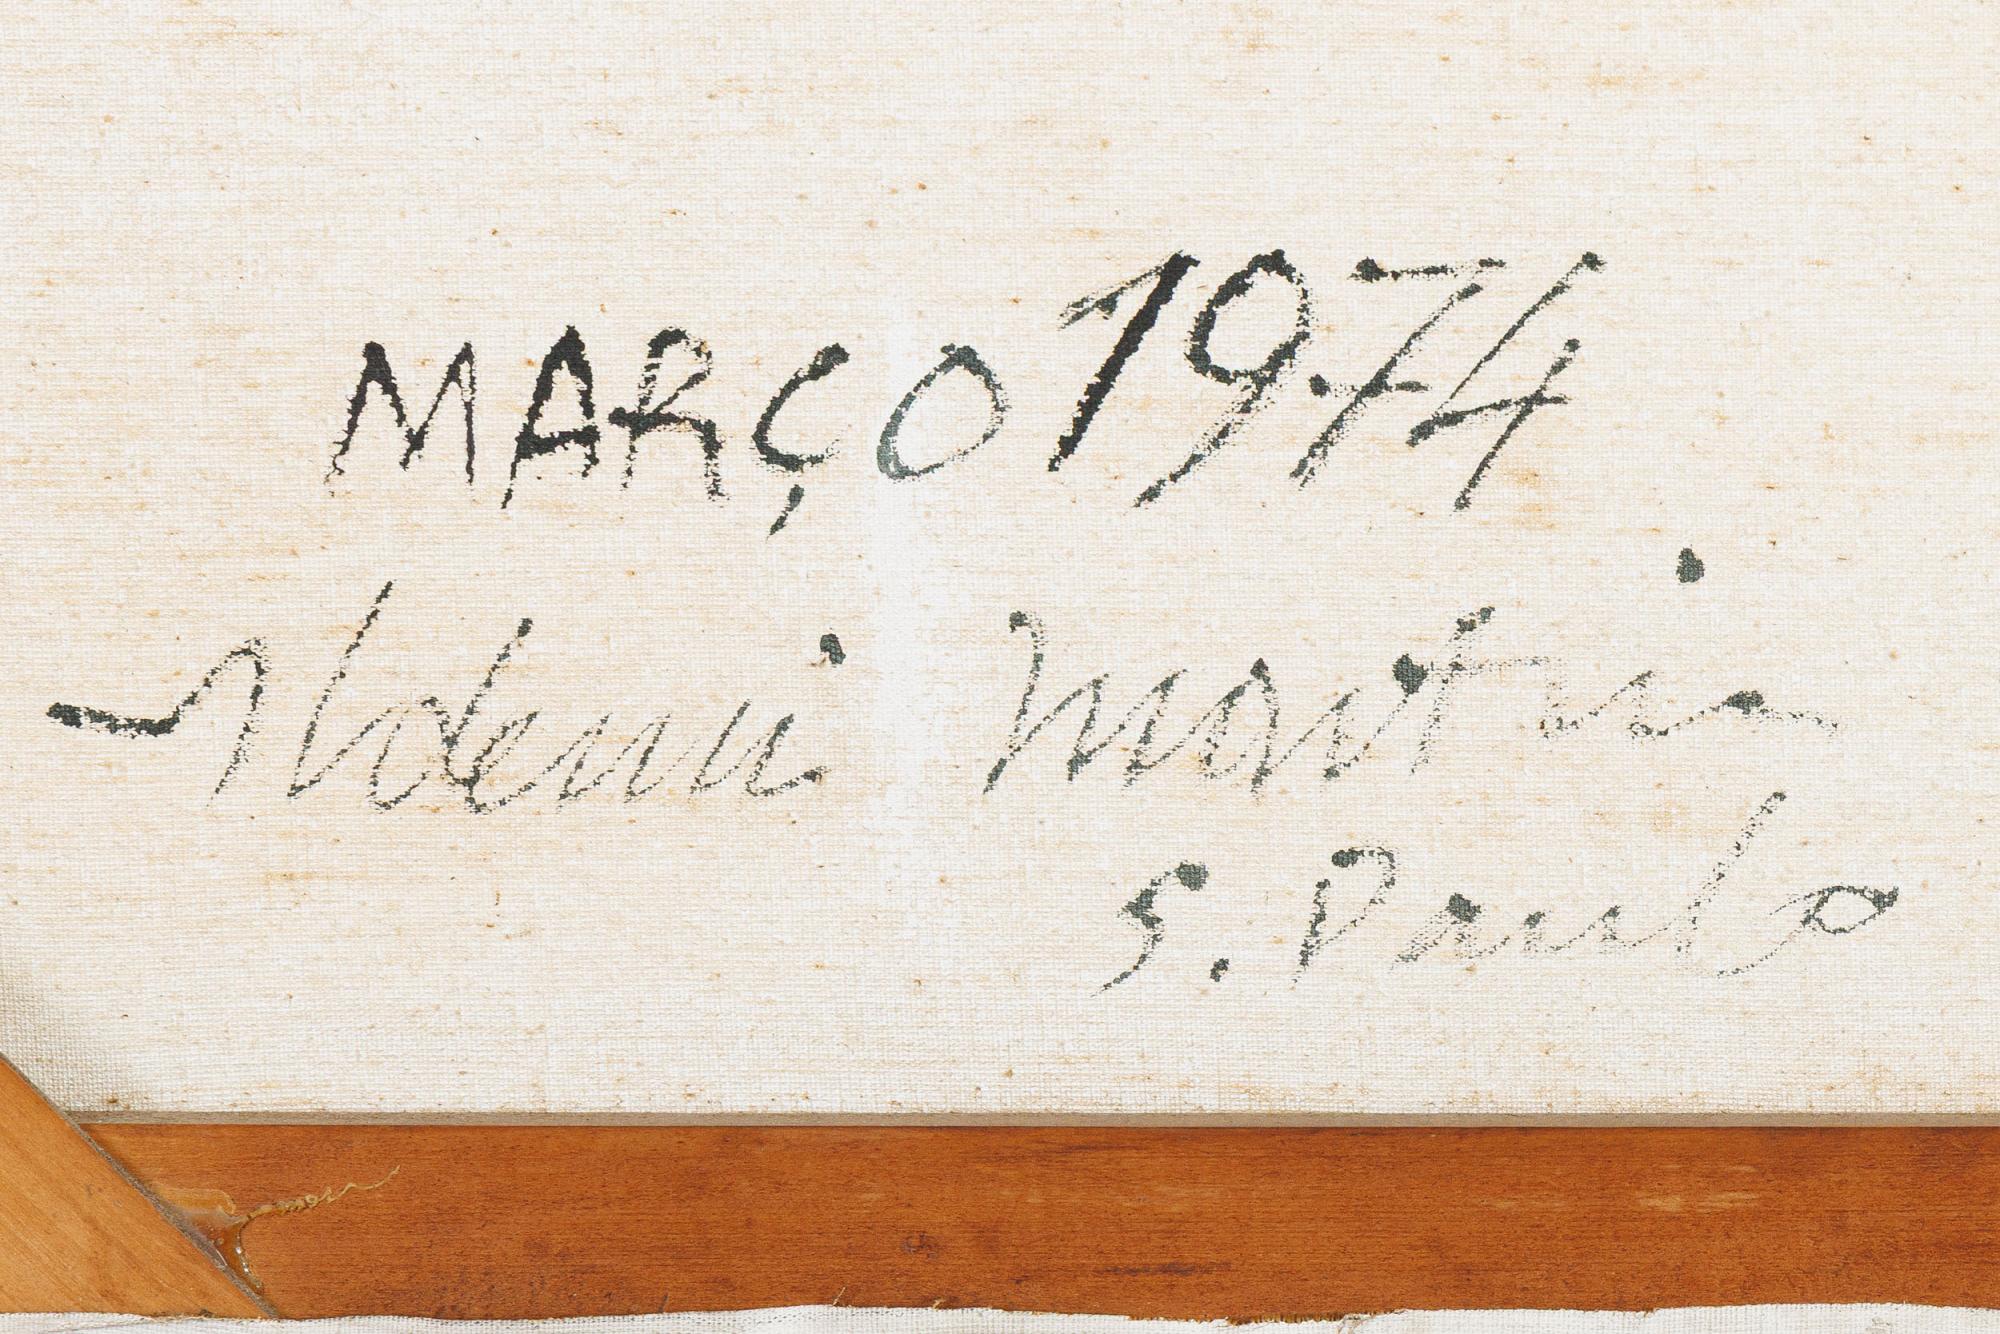 MARÇO 1974
Noemi Martin
S. Paulo